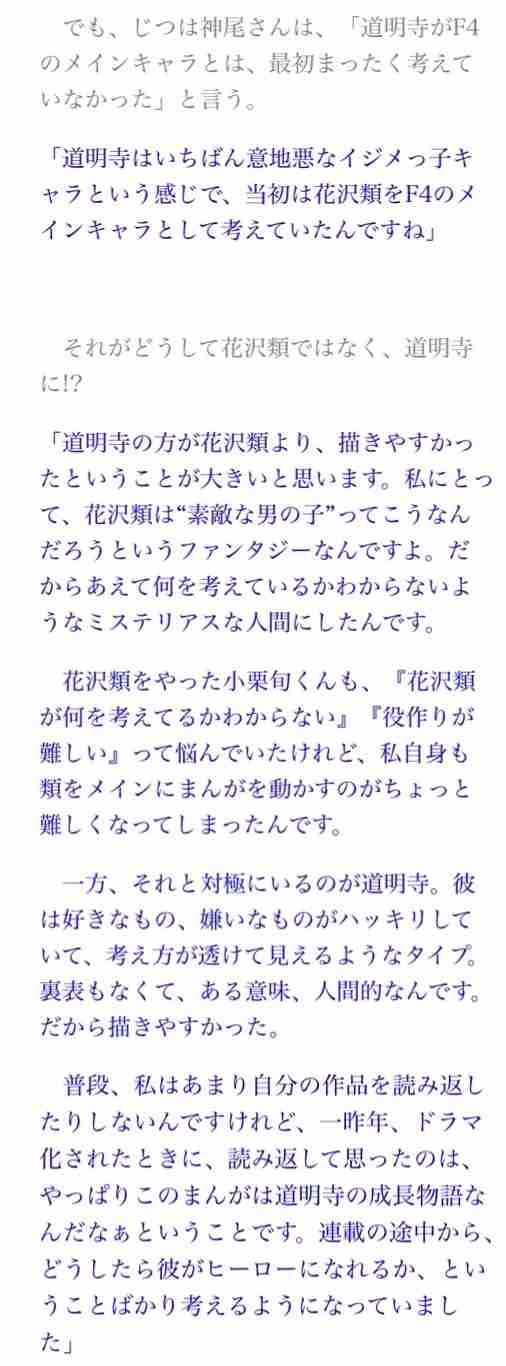 でも、じつは神尾さんは、「道明寺がF4
のメインキャラとは、最初まったく考えて
いなかった」と言う。
「道明寺はいちばん意地悪なイジメっ子キ
ャラという感じで、当初は花沢類をF4のメ
インキャラとして考えていたんですね」
それがどうして花沢類ではなく、道明寺
に!?
「道明寺の方が花沢類より、描きやすかっ
たということが大きいと思います。私にとっ
て、花沢類は“素敵な男の子”ってこうなん
だろうというファンタジーなんですよ。だ
からあえて何を考えているかわからないよ
うなミステリアスな人間にしたんです。
花沢類をやった小栗旬くんも、『花沢類
が何を考えてるかわからない』『役作りが
難しい』って悩んでいたけれど、私自身も
類をメインにまんがを動かすのがちょっと
難しくなってしまったんです。
一方、それと対極にいるのが道明寺。彼
は好きなもの、嫌いなものがハッキリして
いて、考え方が透けて見えるようなタイプ。
裏表もなくて、ある意味、人間的なんです。
だから描きやすかった。
普段、私はあまり自分の作品を読み返し
たりしないんですけれど、一昨年、ドラマ
化されたときに、読み返して思ったのは、
やっぱりこのまんがは道明寺の成長物語な
んだなぁということです。連載の途中から、
どうしたら彼がヒーローになれるか、とい
うことばかり考えるようになっていまし
た」